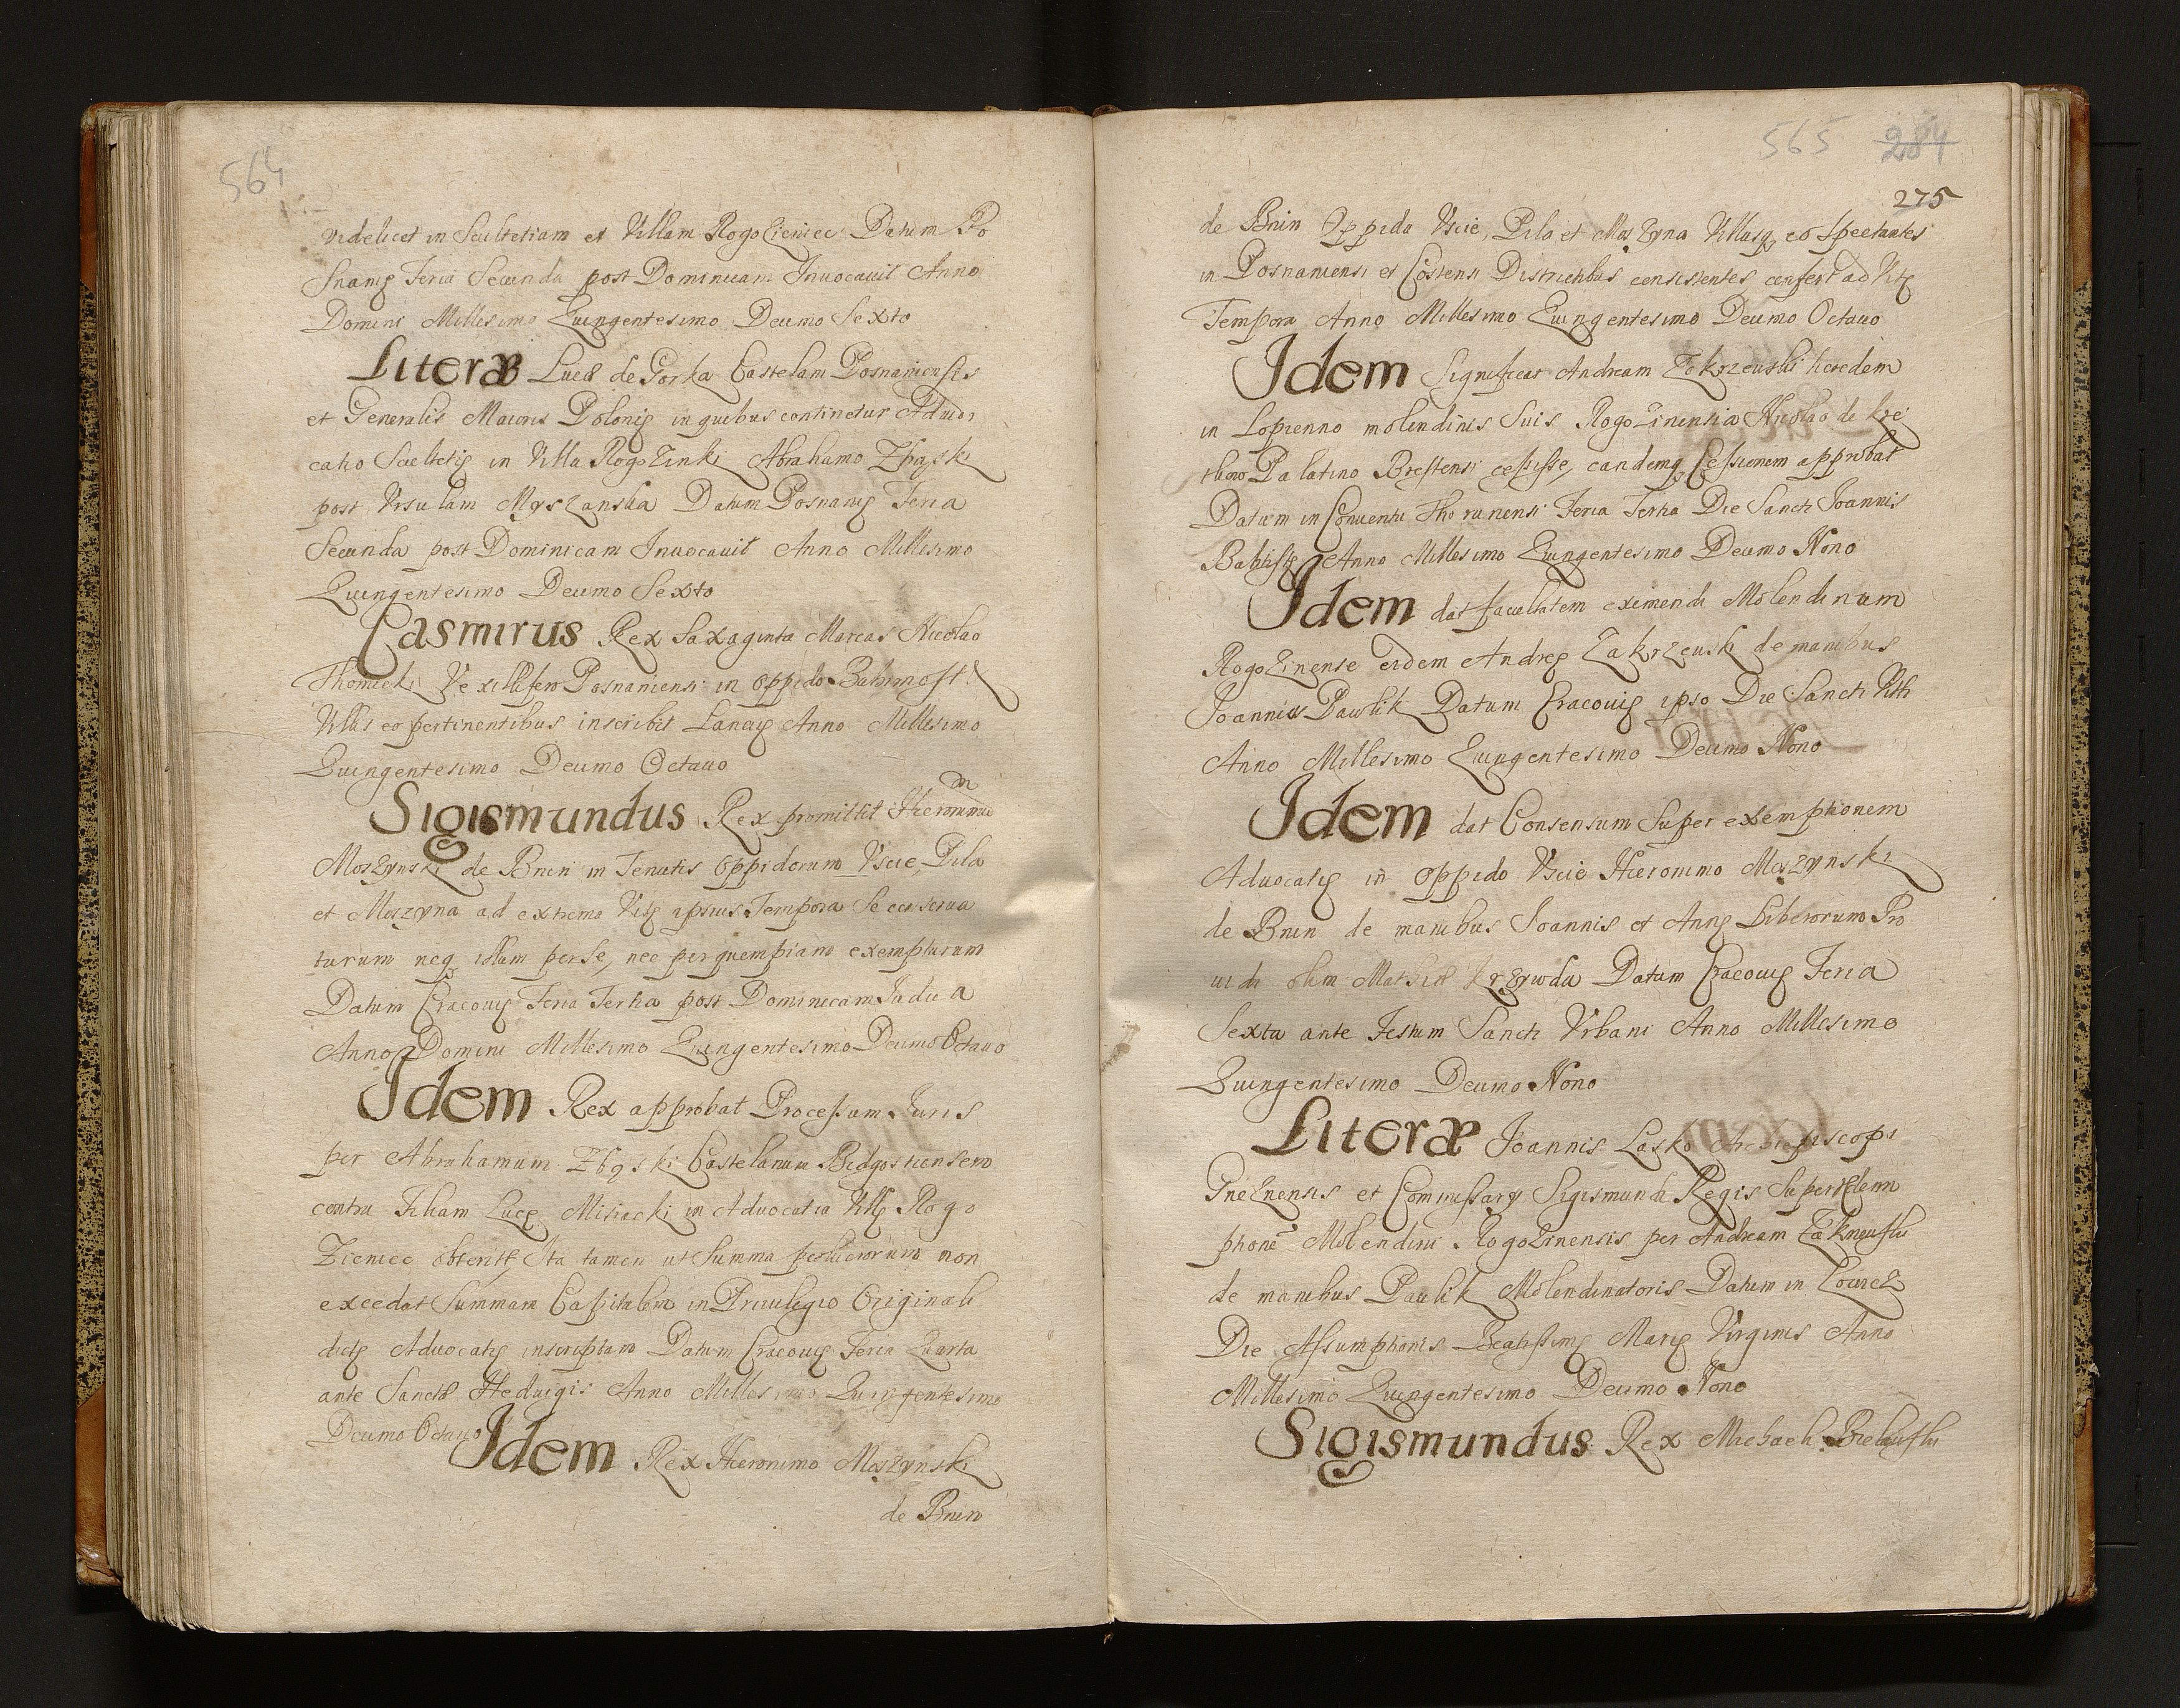 564
videlicet in Scultetiam et Villam Rogoźieniec Datum Po
snanię Feria Secunda post Dominicam Inuocauit Anno
Domini Millesimo Quingentesimo Decimo Sexto
Literæ Lucæ de Gorka Castelani Posnaniensis
et Generalis Maioris Polonię in quibus continetur Aduo
catio Scultetię in Villa Rogozinki Abrahamo Zbąski
post Vrsulam Myszanska Datum Posnanię Feria
Secunda post Dominicam Inuocauit Anno Millesimo
Quingentesimo Decimo Sexto
Casmirus Rex Saxaginta Marcas Nicolao
Thomicki Vexillifero Posnaniensi in oppido Babimost
Villis eo pertinentibus inscribit Lancię Anno Millesimo
Quingentesimo Decimo Octauo
Sigismundus Rex promittit Hieronimum
Moszynski de Bnin in Tenutis Oppidorum Vscie, Pila
et Moszyna ad extrema Vitę ipsius Tempora Se conserua
turum neq illum per Se, nec per quempiam exempturum
Datum Cracouię Feria Tertia post Dominicam Iudica
Anno Domini Millesimo Quingentesimo Decimo Octauo
Idem Rex approbat Processum Iuris
per Abrahamum Zbąski Castelanum Bidgostiensem
contra Filiam Lucę Misiacki in Aduocatia Villę Rogo
Zieniec obtentę Ita tamen ut Summa non
excedat Summam Capitalem in Priuilegio Originali
dictę Aduocatię inscriptam Datum Cracouię Feria Quarta
ante Sanctæ Heduigis Anno Millesimo Quingentesimo
Decimo Octauo
Idem Rex Hieronimo Moszynski
de Bnin
565 284
275
de Bnin Oppida Vscie, Pila et Moszyna Villasq eo Spectantes
in Posnaniensi et Costensi Districtibus consistentes, confert ad Vitę
Tempora Anno Millesimo Quingentesimo Decimo Octauo
Idem Significat Andream Zakrzeuski heredem
in Lopienno molendinis Suis Rogozinensia Nicolao de Kre
tkow Palatino Brestensi cessisse, eandemq Cessionem approbat
Datum in Conuentu Thorunensi Feria Tertia Die Sancti Ioannis
Babtistę Anno Millesimo Quingentesimo Decimo Nono
Idem dat facultatem eximendi Molendinum
Rogozinense eidem Andreę Zakrzeuski de manibus
Ioannis Pawlik Datum Cracouię ipso Die Sancti Viti
Anno Millesimo Quingentesimo Decimo Nono
Idem dat Consensum Super exemptionem
Aduocatię in oppido Vscie Hieronimo Moszynski
de Bnin de manibus Ioannis et Annę Liberorum Pro
uidi olim Mathiæ Krzywda Datum Cracouię Feria
Sexta ante Festum Sancti Vrbani Anno Millesimo
Quingentesimo Decimo Nono
Literæ Ioannis Lasko Archiepiscopi
Gneznensis et Commissary Sigismundi Regis Super
ptione Molendini Rogozinensis per Andream Zakrzeuski
de manibus Paulik Molendinatoris Datum in Louicz
Die Assumptionis Beatissimę Marię Virginis Anno
Millesimo Quingentesimo Decimo Nono
Sigismundus Rex Michaeli